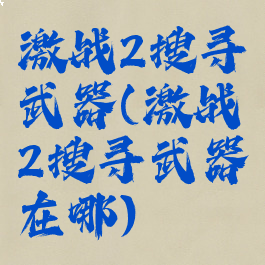 激战2搜寻
武器(激战
2搜寻武器
在哪)